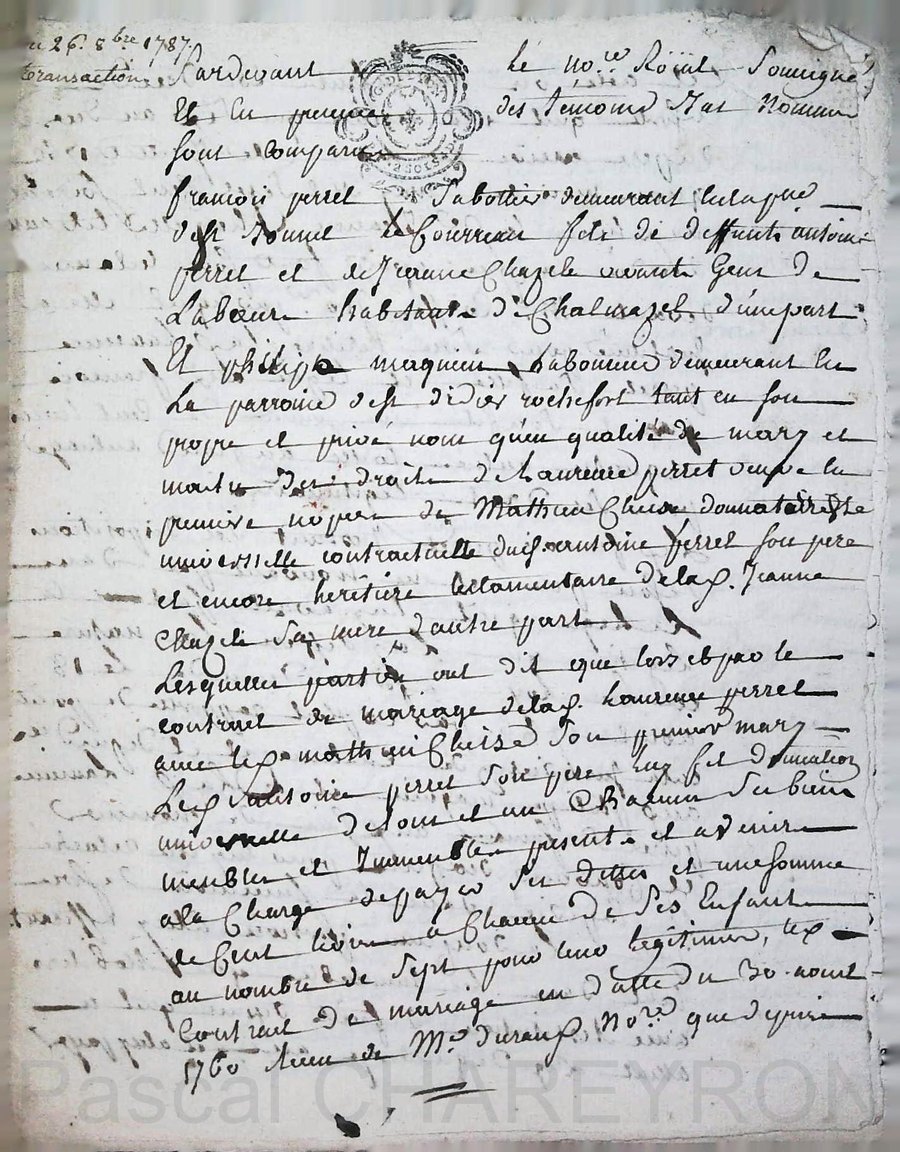 du 26. 8bre 1787.
transaction
Pardevant le nore Roial soussigné
Et En presence des temoins bas nommes
sont comparus
françois perret sabottier demeurant
de st bonnet le Courreau fils de deffunts antoine
perret et de Jeanne Chazele vivants Gens de
Labœur habitants de Chalmazel d'une part
Et philippe maquieu laboureur demeurant en
La parroisse de st didier rochefort tant en son
propre et privé nom qu'en qualité de mary et
maitre des droits de Laurence perret veuve en
premiere nopces de Mathieu donnataire
universelle contractuelle dud. antoine perret son pere
et encore heritiere testamentaire de lad. Jeanne
Chazele sa mere d'autre part
Lesquelles parties ont dit que lors et par le
contrat de mariage de lad. Laurence perret
avec led. mathieu son premier mary
Led. antoine perret son pere luy fit donnation
universelle de tous et un chacun ses biens
meubles et Immeubles presents et avenir
a la Charge de payer ses dettes et une somme
de Cent livres a Chacun de ses Enfants
au nombre de sept pour leur legitime, led.
Contrat de mariage en datte du 30 aoust
1760 Recu de Me durand Nore que depuis
Pascal CHAREYRON